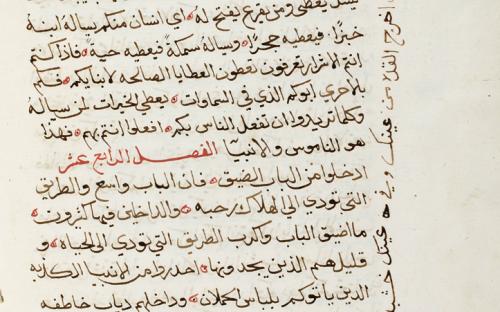 يسل يعطى ومن يقرع يفتح له اي انسان منكم يساله ابنه
خبزا فيعطيه حجرا وسياله سمكة فيعطيه حية فاذ كنتم
انتم الاشرار تعرفون تعطون العطايا الصالحه لابنايكم فكم
بالاحرى ابوكم الذي في السماوات يعطي الخيرات لمن سياله
وكلما تريدوا ان تفعل الناس بكم افعلوا انتم بهم فهذا
هو الناموس والانبيا الفصل الرابع عشر
ادخلوا من الباب الضيق فان الباب واسع والطريق
التي تودي الى الهلاك رحبه والداخلين فيها كثيرون
ما اضيق الباب واكرب الطريق التي تودي الى الحياة و
قليل هم الذين يجدونها احدروا من الانبيا الكدبه
الذين ياتوكم بلباس الحملان وداخلهم دياب خاطفه
اخرج القذا من عينك